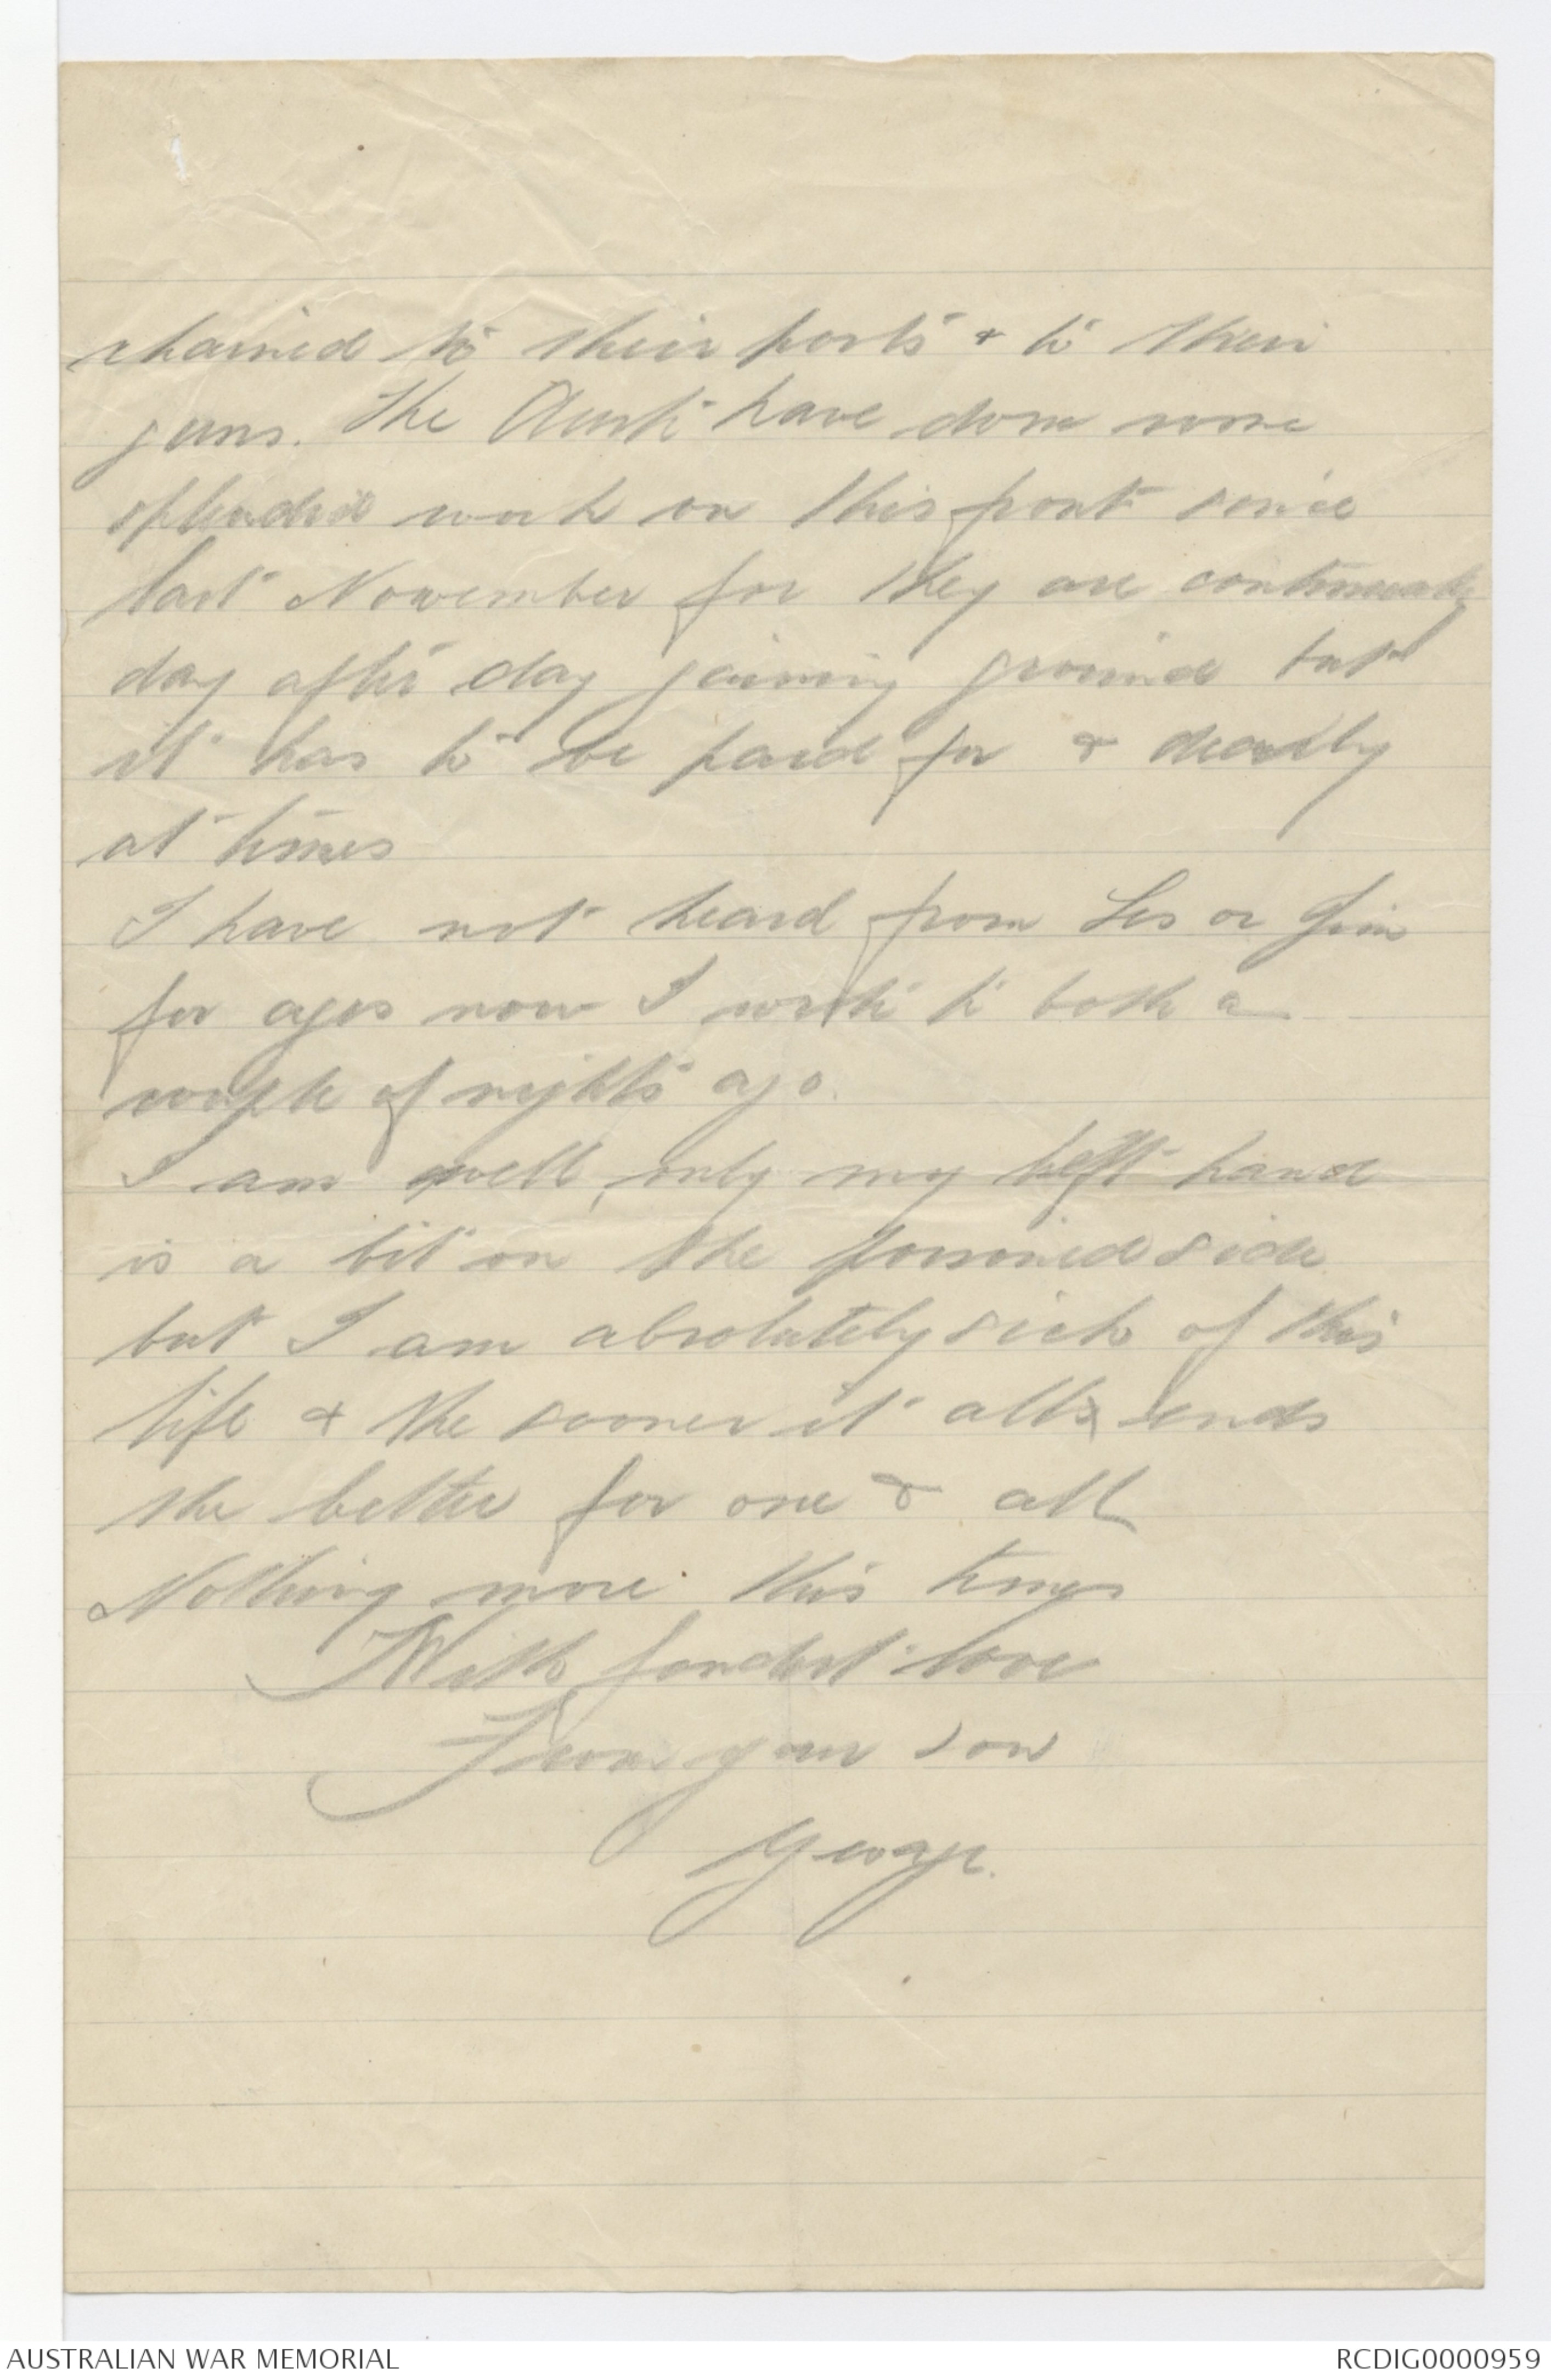 chained to their posts & to their
guns. The Aust have done some
splendid work on this front since
last November for they are continually
day after day gaining ground but
it has to be paid for & dearly
at times
I have not heard from Les or Jim
for ages now I wrote to both a
couple of nights ago.
I am well, only my left hand
is a bit on the poisoned side
but I am absolutely sick of this
life & the sooner it all ends
the better for one & all
Nothing more this time
With fondest love
From your son
George.
AUSTRALIAN WAR MEMORIAL
RCDIG0000959